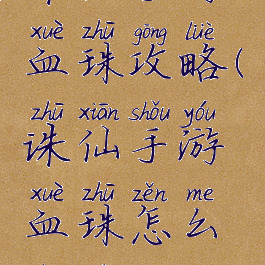 xuè zhū gōng lüè
血珠攻略(
zhū xiān shǒu yóu
诛仙手游
xuè zhū zěn me
血珠怎么